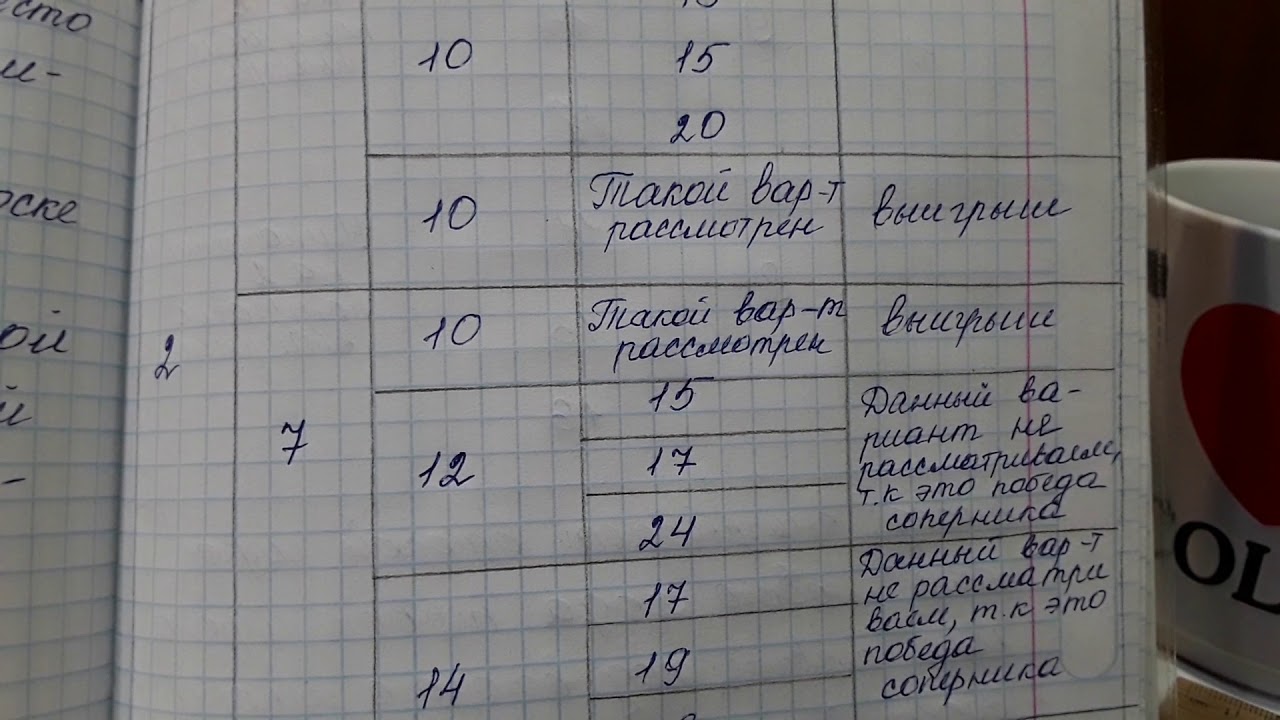 сто
и-
10
15
20
оске
10
Такой вар-т
рассмотрен
выигрыш
ой
й
-
2
7
10
Такой вар-т
рассмотрен
выигрыш
12
15
17
24
Данный ва-
риант не
рассматриваем,
т.к это победа
соперника
14
17
19
Данный вар-т
не рассматри
ваем, т.к это
победа
соперника
OL